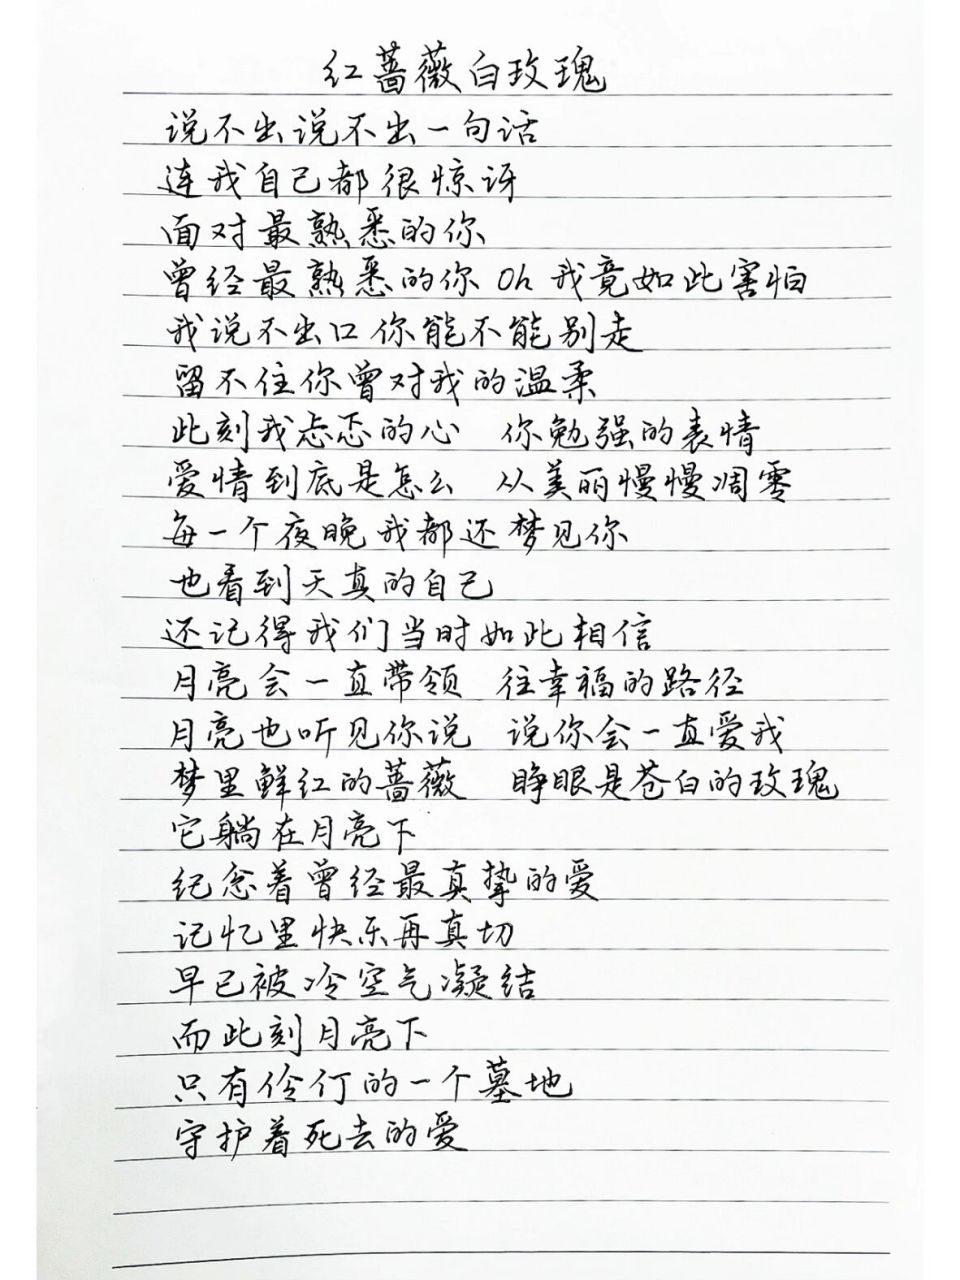 红蔷薇白玫瑰
说不出说不出一句话
连我自己都很惊讶
面对最熟悉的你
曾经最熟悉的你 Oh 我竟如此害怕
我说不出口你能不能别走
留不住你曾对我的温柔
此刻我忐忑的心 你勉强的表情
爱情到底是怎么 从美丽慢慢凋零
每一个夜晚我都还梦见你
也看到天真的自己
还记得我们当时如此相信
月亮会一直带领 往幸福的路径
月亮也听见你说 说你会一直爱我
梦里鲜红的蔷薇 睁眼是苍白的玫瑰
它躺在月亮下
纪念着曾经最真挚的爱
记忆里快乐再真切
早已被冷空气凝结
而此刻月亮下
只有伶仃的一个墓地
守护着死去的爱